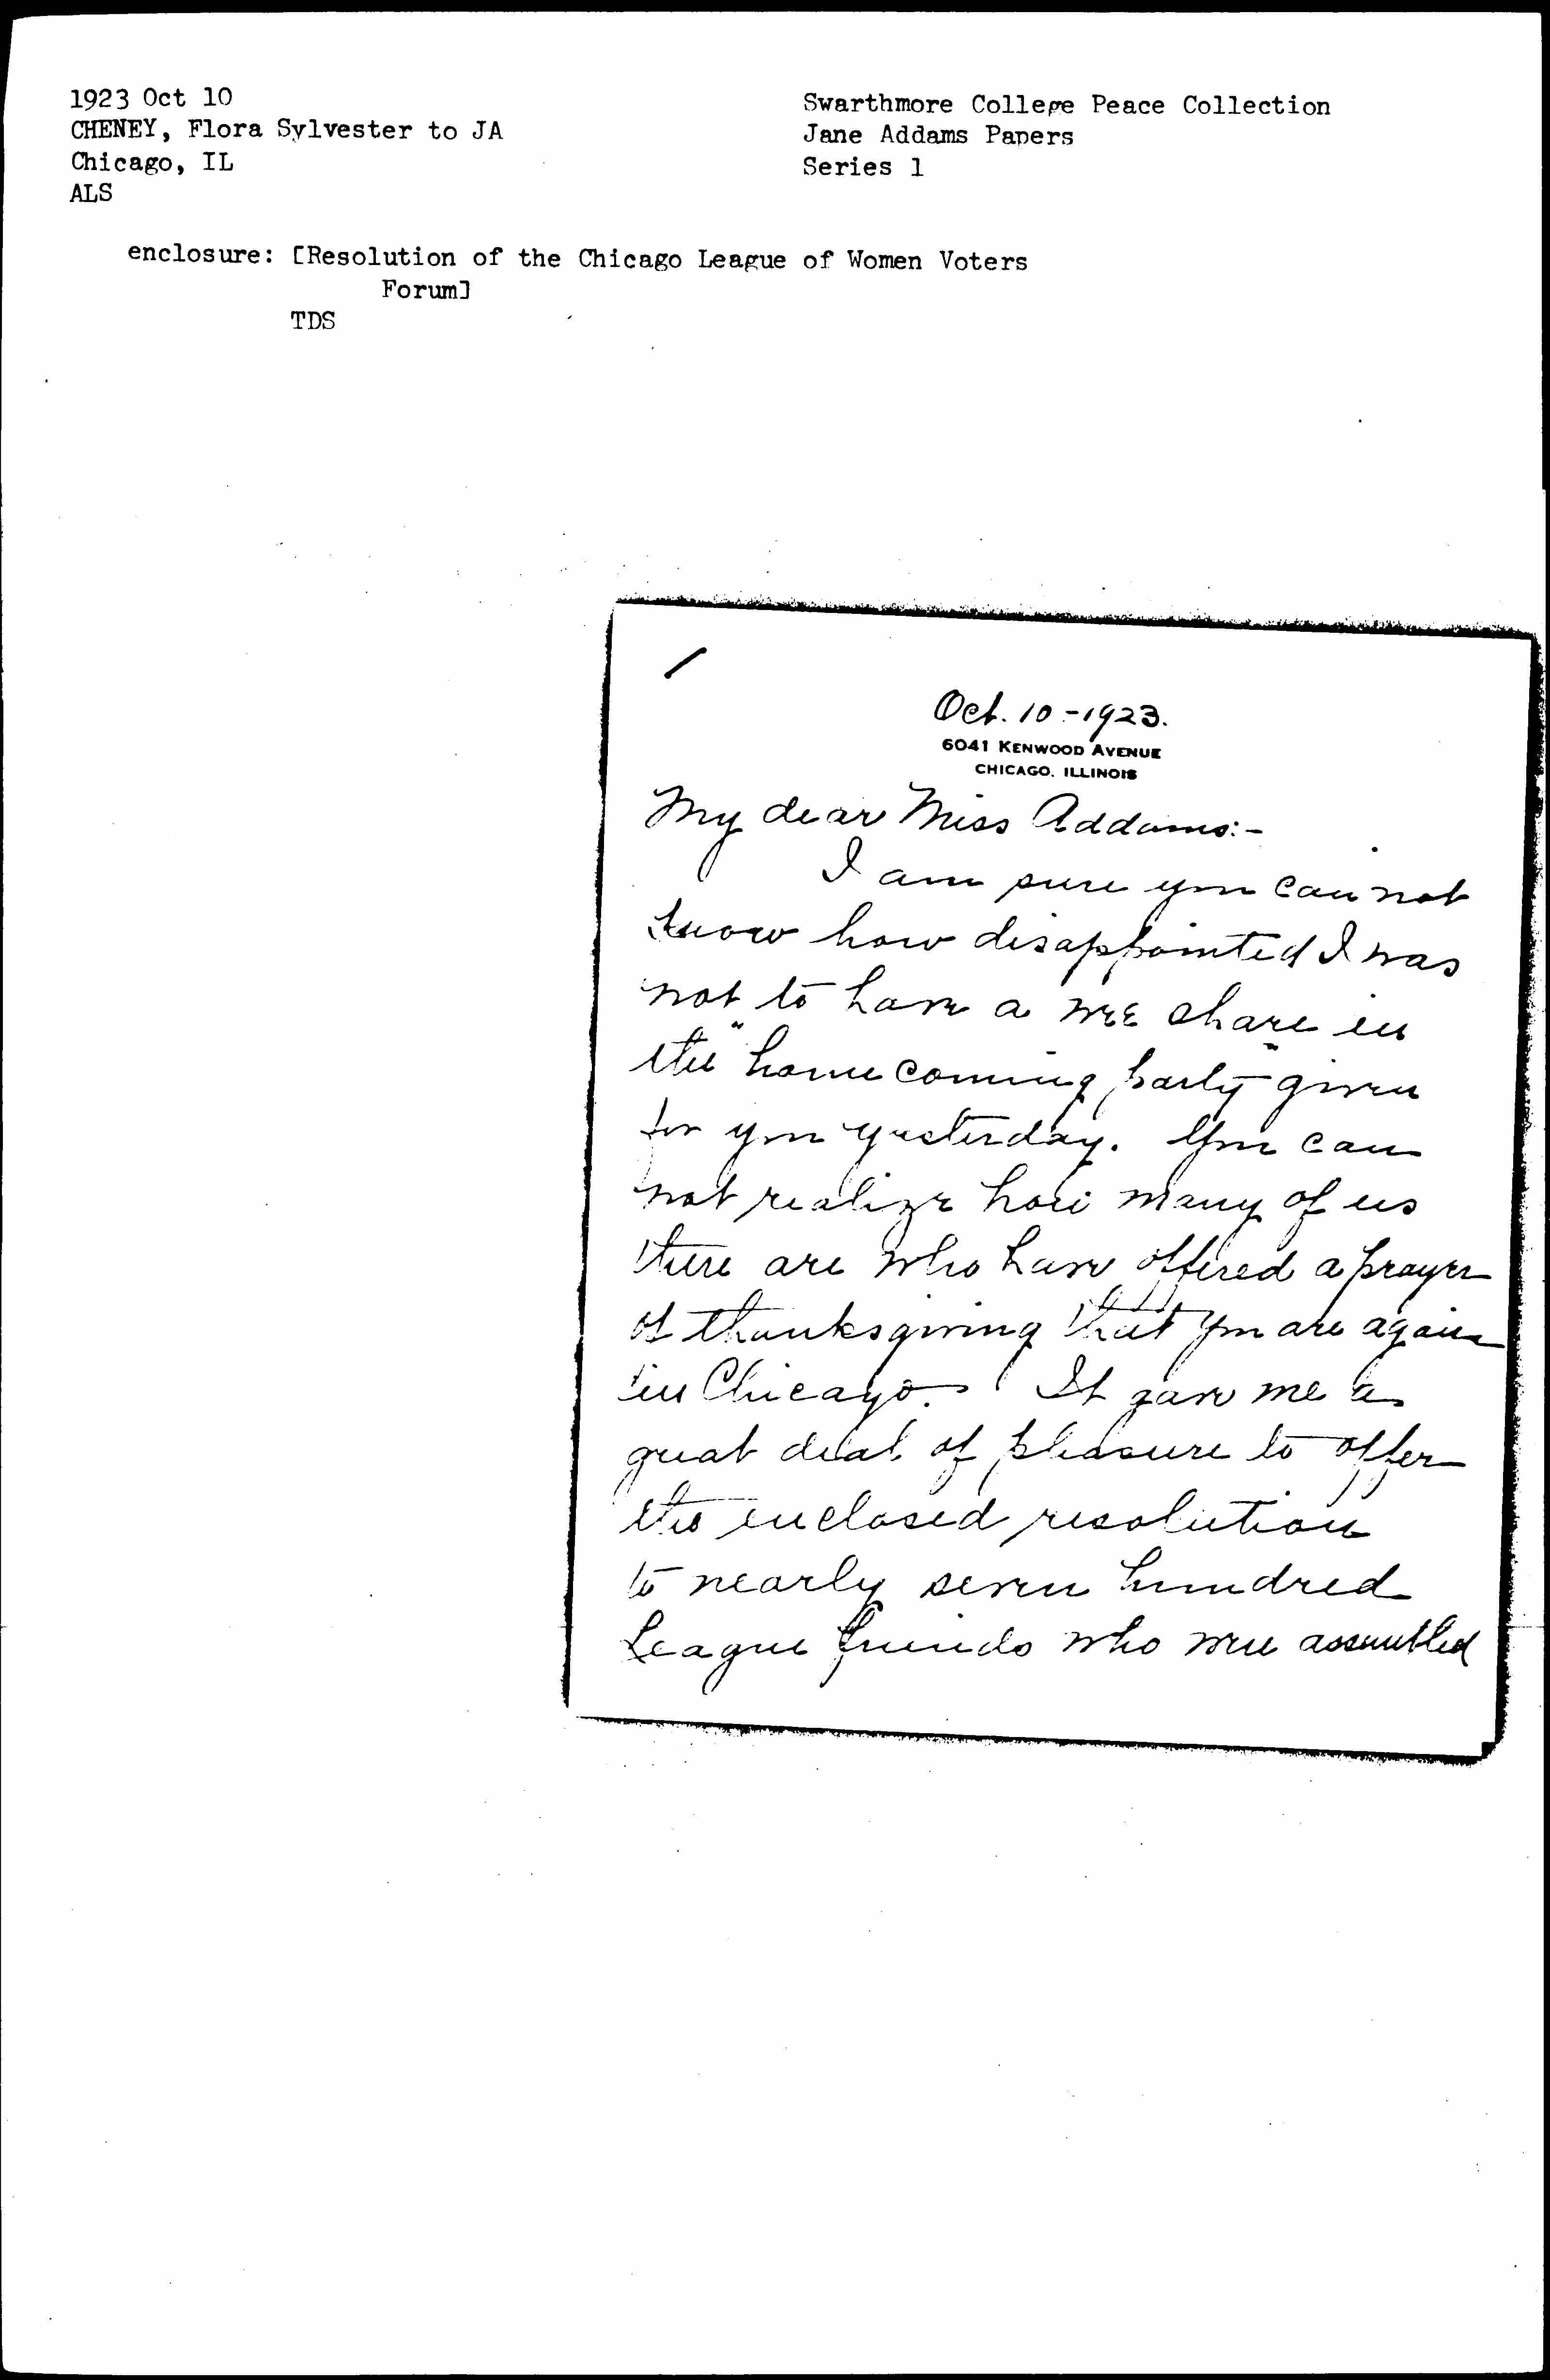 1923 Oct 10
CHENEY, Flora Sylvester to JA
Chicago, IL
ALS
Swarthmore College Peace Collection
Jane Addams Papers
Series 1
enclosure: [Resolution of the Chicago League of Women Voters
Forum]
TDS
/
Oct. 10-1923.
6041 KENWOOD AVENUE
CHICAGO, ILLINOIS
My dear Miss Addams:-
I am sure you can not
know how disappointed I was
not to have a wee share in
the "home coming party" given
for you yesterday. You can
not realize how many of us
there are who have offered a prayer
of thanksgiving that you are again
in Chicago. It gave me a
great deal of pleasure to offer
the enclosed resolution
to nearly seven hundred
League friends who were assembled